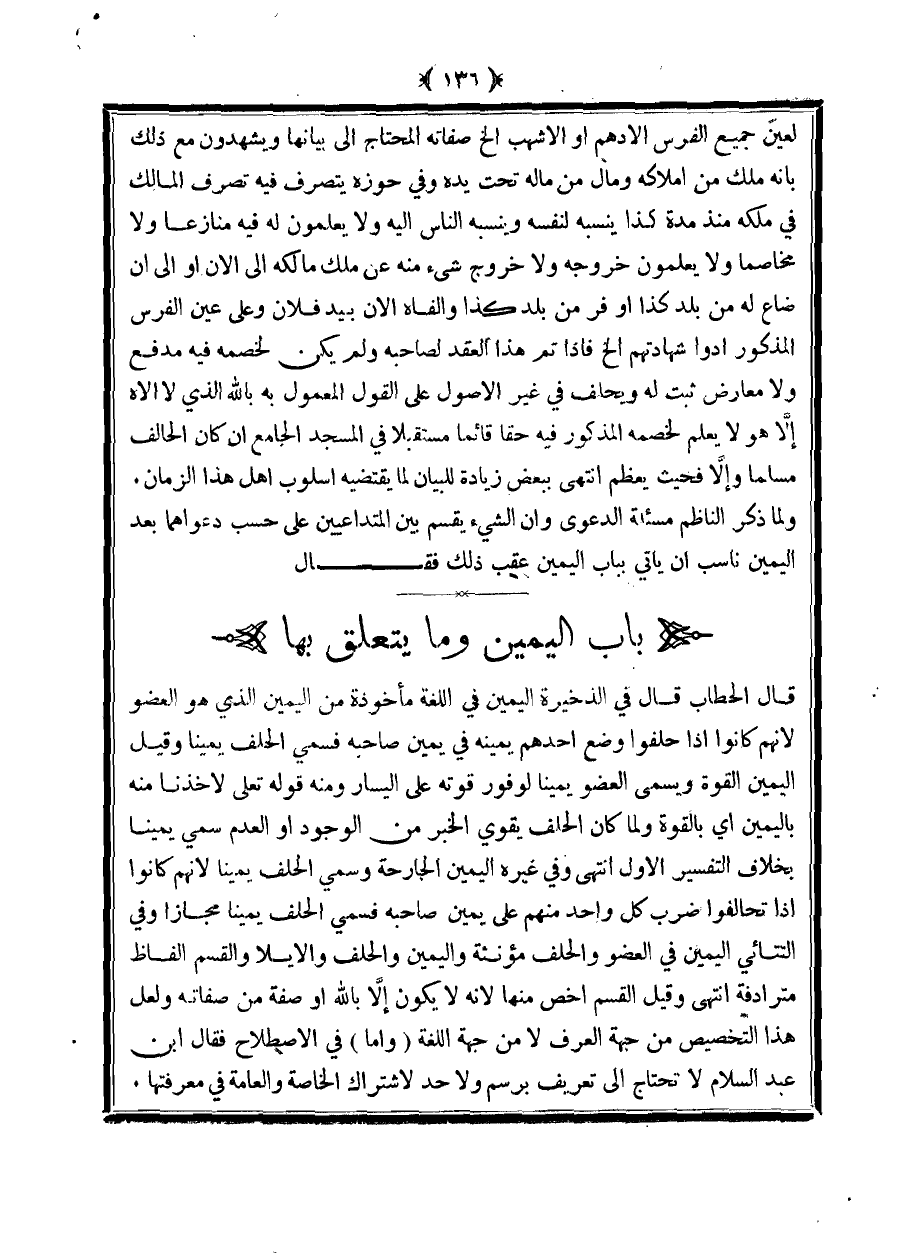 ﴿ ١٣٦ ﴾
لعينّ جميع الفرس الادهم او الاشهب الخ صفاته المحتاج الى بيانها ويشهدون مع ذلك
بانه ملك من املاكه ومال من ماله تحت يده وفي حوزه يتصرف فيه تصرف المالك
في ملكه منذ مدة كذا ينسبه لنفسه وينسبه الناس اليه ولا يعلمون له فيه منازعا ولا
مخاصما ولا يعلمون خروجه ولا خروج شيء منه عن ملك مالكه الى الان او الى ان
ضاع له من بلد كذا او فر من بلد كذا والفاه الان بيد فلان وعلى عين الفرس
المذكور ادوا شهادتهم الخ فاذا تم هذا العقد لصاحبه ولم يكن لخصمه فيه مدفع
ولا معارض ثبت له ويحلف في غير الاصول على القول المعمول به بالله الذي لا الاه
إلَّا هو لا يعلم لخصمه المذكور فيه حقا قائما مستقبلا في المسجد الجامع ان كان الحالف
مسلما وإلَّا فحيث يعظم انتهى ببعض زيادة للبيان لما يقتضيه اسلوب اهل هذا الزمان ٠
ولما ذكر الناظم مسئلة الدعوى وان الشيء يقسم بين المتداعيين على حسب دعواهما بعد
اليمين ناسب ان ياتي بباب اليمين عقب ذلك فقـــــال
باب اليمين وما يتعلق بها
قال الحطاب قال في الذخيرة اليمين في اللغة مأخوذة من اليمين الذي هو العضو
لانهم كانوا اذا حلفوا وضع احدهم يمينه في يمين صاحبه فسمي الحلف يمينا وقيل
اليمين القوة ويسمى العضو يمينا لوفور قوته على اليسار ومنه قوله تعلى لاخذنا منه
باليمين اي بالقوة ولما كان الحلف يقوي الخبر من الوجود او العدم سمي يمينا
بخلاف التفسير الاول انتهى وفي غيره اليمين الجارحة وسمي الحلف يمينا لانهم كانوا
اذا تحالفوا ضرب كل واحد منهم على يمين صاحبه فسمي الحلف يمينا مجازا وفي
التتائي اليمين في العضو والحلف مؤنثة واليمين والحلف والايلا والقسم الفاظ
مترادفة انتهى وقيل القسم اخص منها لانه لا يكون إلَّا بالله او صفة من صفاته ولعل
هذا التخصيص من جهة العرف لا من جهة اللغة ( واما ) في الاصطلاح فقال ابن
عبد السلام لا تحتاج الى تعريف برسم ولا حد لاشتراك الخاصة والعامة في معرفتها ٠